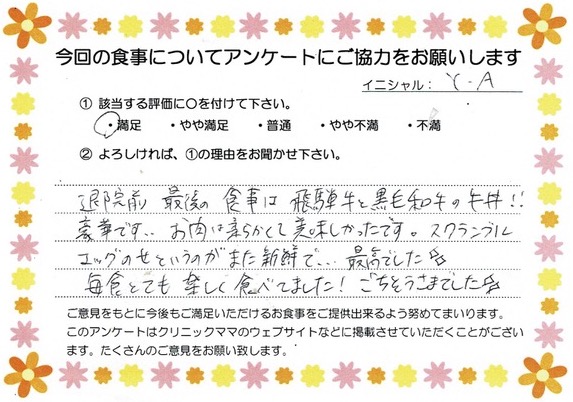 今回の食事についてアンケートにご協力をお願いします
イニシャル： Y-A
① 該当する評価に○を付けて下さい。
・満足 ・やや満足 ・普通 ・やや不満 ・不満
② よろしければ、①の理由をお聞かせ下さい。
退院前 最後の食事は 飛騨牛と黒毛和牛の牛丼!!
豪華です.. お肉は柔らかくて美味しかったです。スクランブル
エッグのせというのがまた新鮮で... 最高でした☆
毎食とても 楽しく食べてました! ごちそうさまでした☆
ご意見をもとに今後もご満足いただけるお食事をご提供出来るよう努めてまいります。
このアンケートはクリニックママのウェブサイトなどに掲載させていただくことがござい
ます。たくさんのご意見をお願い致します。